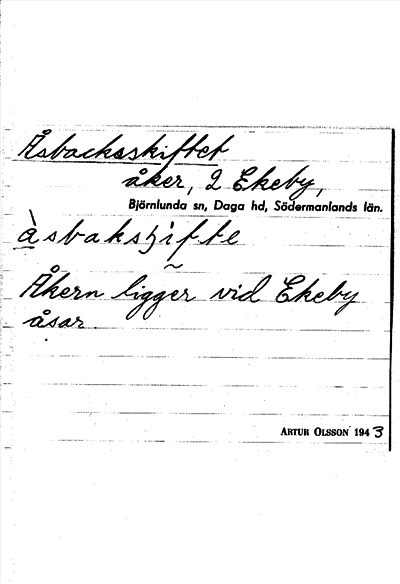 Åsbacksskiftet
åker, 2 Ekeby,
Björnlunda sn, Daga hd, Södermanlands län.
àsbaksjifte
Åkern ligger vid Ekeby
åsar.
ARTUR OLSSON 1943